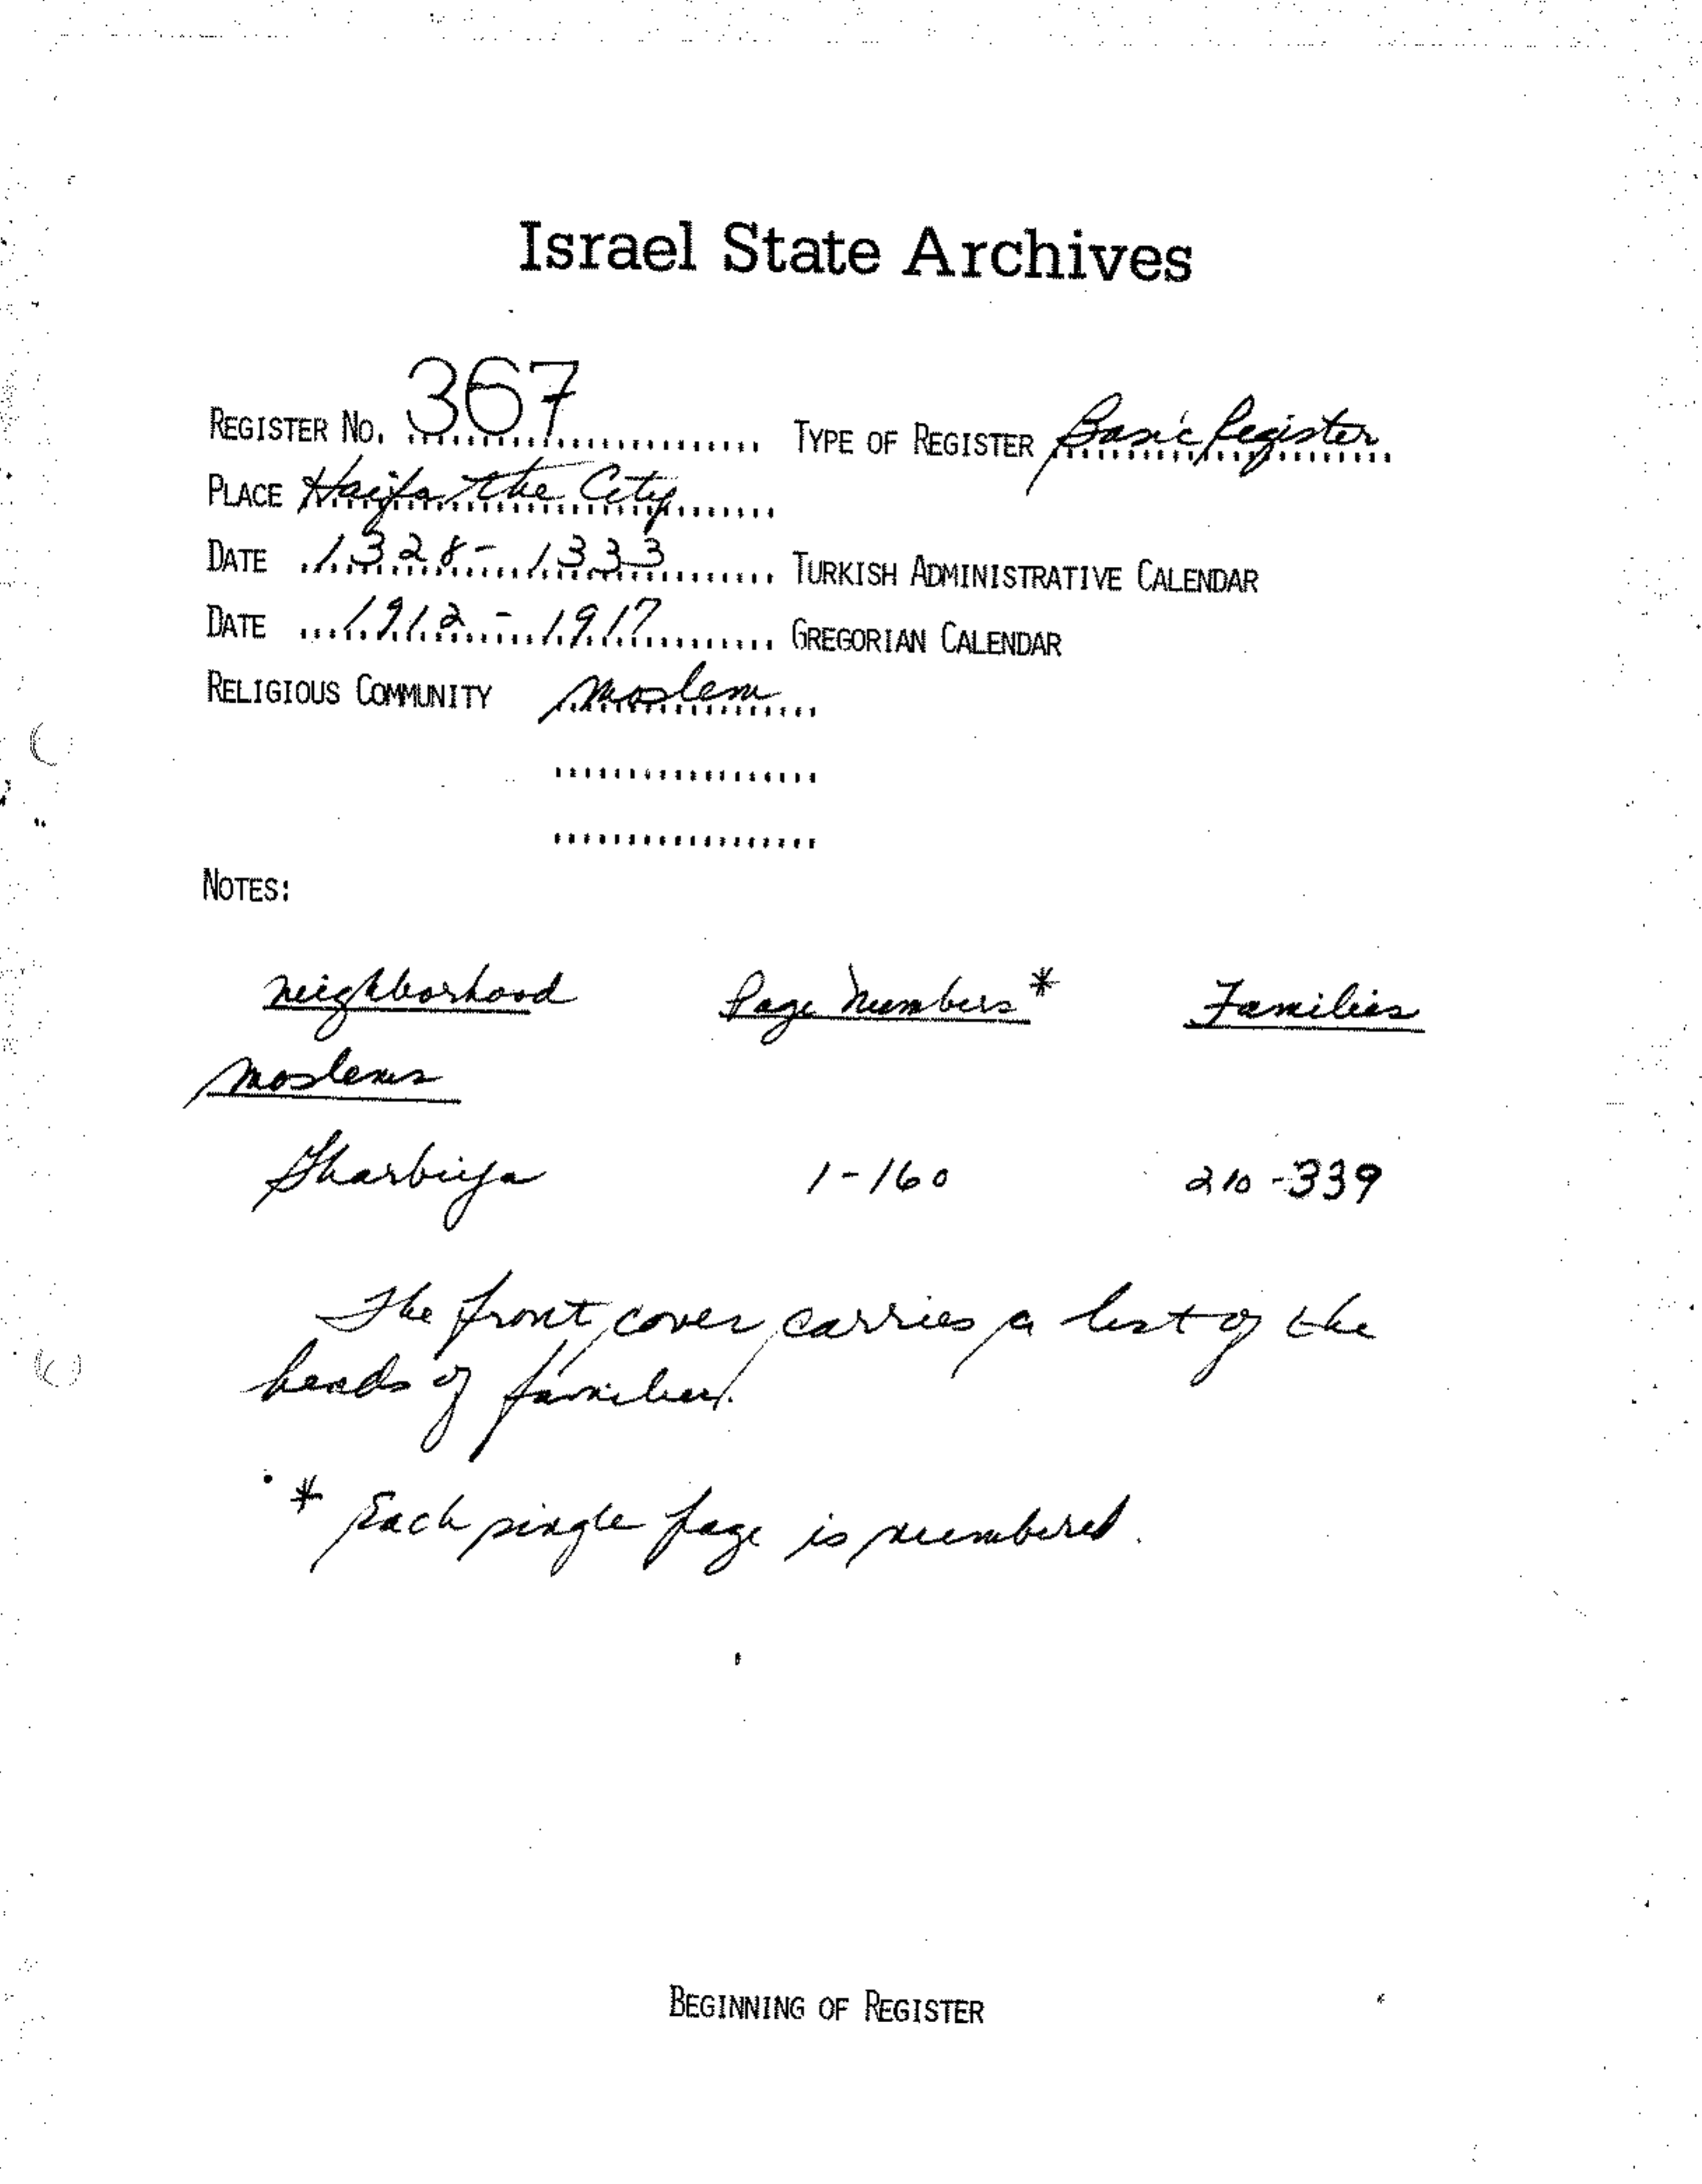 Israel State Archives
REGISTER NO. 367 TYPE OF REGISTER Basic Register
PLACE Haifa the City
DATE 1328-1333 TURKISH ADMINISTRATIVE CALENDAR
DATE 1912-1917 GREGORIAN CALENDAR
RELIGIOUS COMMUNITY Moslem
NOTES:
Neighborhood Page Numbers* Families
Moslems
Gharbiya 1-160 210-339
The front cover carries a list of the
heads of families.
* Each single page is numbered.
BEGINNING OF REGISTER